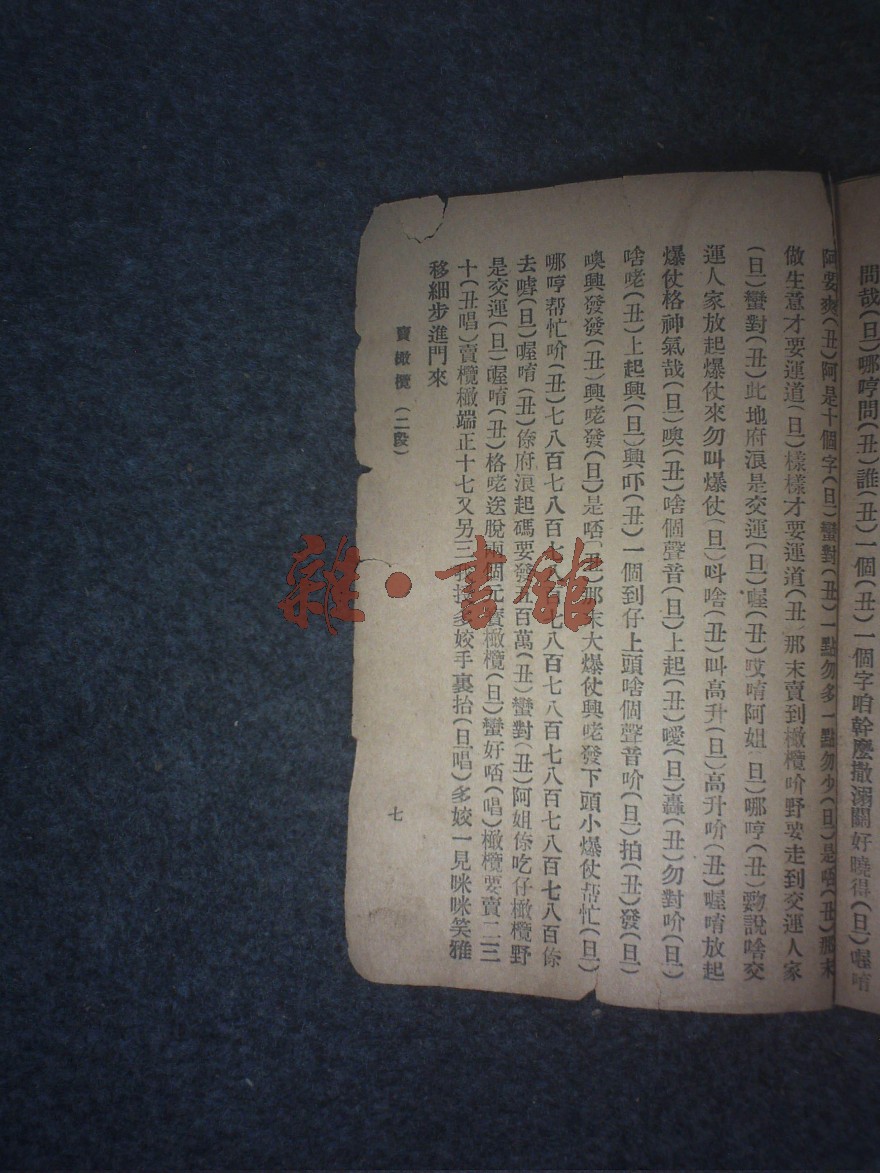 問哉(旦)哪哼問(丑)誰(丑)一個(丑)一個字咱幹麼撒溺關好曉得(旦)喔唷
阿要爽(丑)阿是十個字(旦)蠻對(丑)一點勿多一點勿少(旦)是唔(丑)那末
做生意才要運道(旦)樣樣才要運道(丑)那末賣到橄欖吤野要走到交運人家
(旦)蠻對(丑)此地府浪是交運(旦)喔(丑)哎唷阿姐(旦)哪哼(丑)覅說啥交
運人家放起爆仗來勿叫爆仗(旦)呌啥(丑)叫高升(旦)高升吤(丑)喔唷放起
爆仗格神氣哉(旦)噢(丑)啥個聲音(旦)上起(丑)噯(旦)轟(丑)勿對吤(旦)
啥咾(丑)上起興(旦)興吓(丑)一個到仔上頭啥個聲音吤(旦)拍(丑)發(旦)
噢興發發(丑)興咾發(旦)是唔(丑)那末大爆仗興咾發下頭小爆仗帮忙(旦)
哪哼帮忙吤(丑)七八百七八百七八百七八百七八百七八百七八百倷
去嘑(旦)喔唷(丑)倷府浪起碼要發百萬(丑)蠻對(丑)阿姐倷吃仔橄欖野
是交運(旦)喔唷(丑)格咾送脫兩個元寶橄欖(旦)蠻好唔(唱)橄欖要賣二三
十(丑唱)賣欖橄端正十七又另三多姣手裏抬(旦唱)多姣一見咪咪笑雅
移細步進門來
賣橄欖 (二段)
七
雜·書館